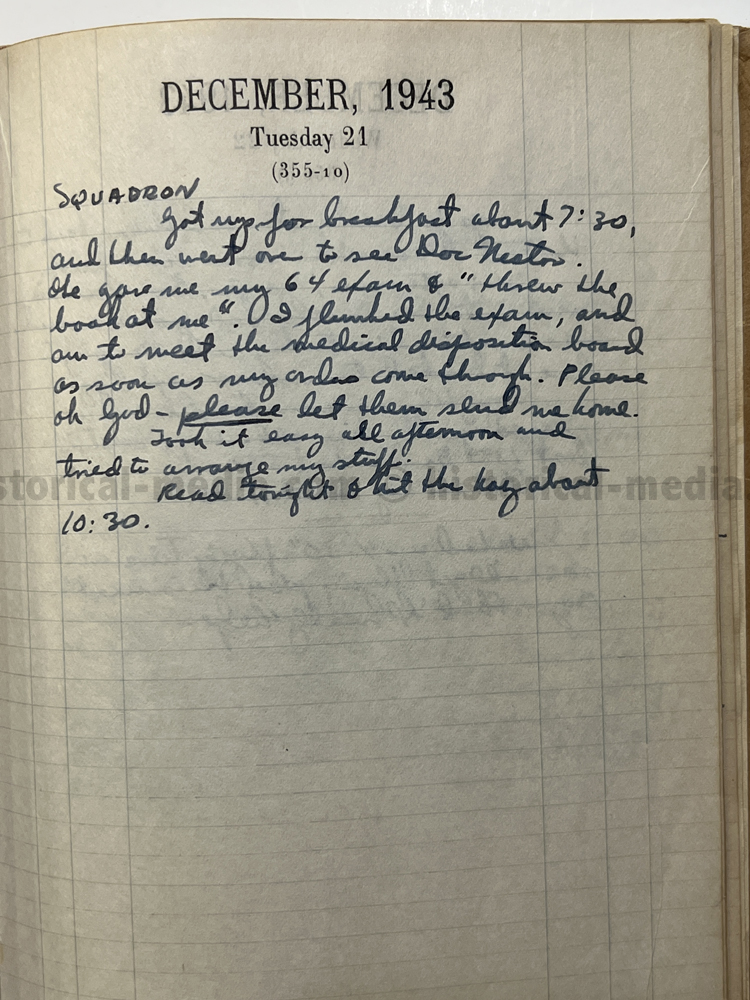 DECEMBER, 1943
Tuesday 21
(355-10)
SQUADRON
Got up for breakfast about 7:30,
and then went over to see Doc Nestor.
He gave me my 64 exam & "threw the
book at me". I flunked the exam, and
am to meet the medical disposition board
as soon as my orders come through. Please
oh God - please let them send me home.
Took it easy all afternoon and
tried to arrange my stuff.
Read tonight & hit the hay about
10:30.